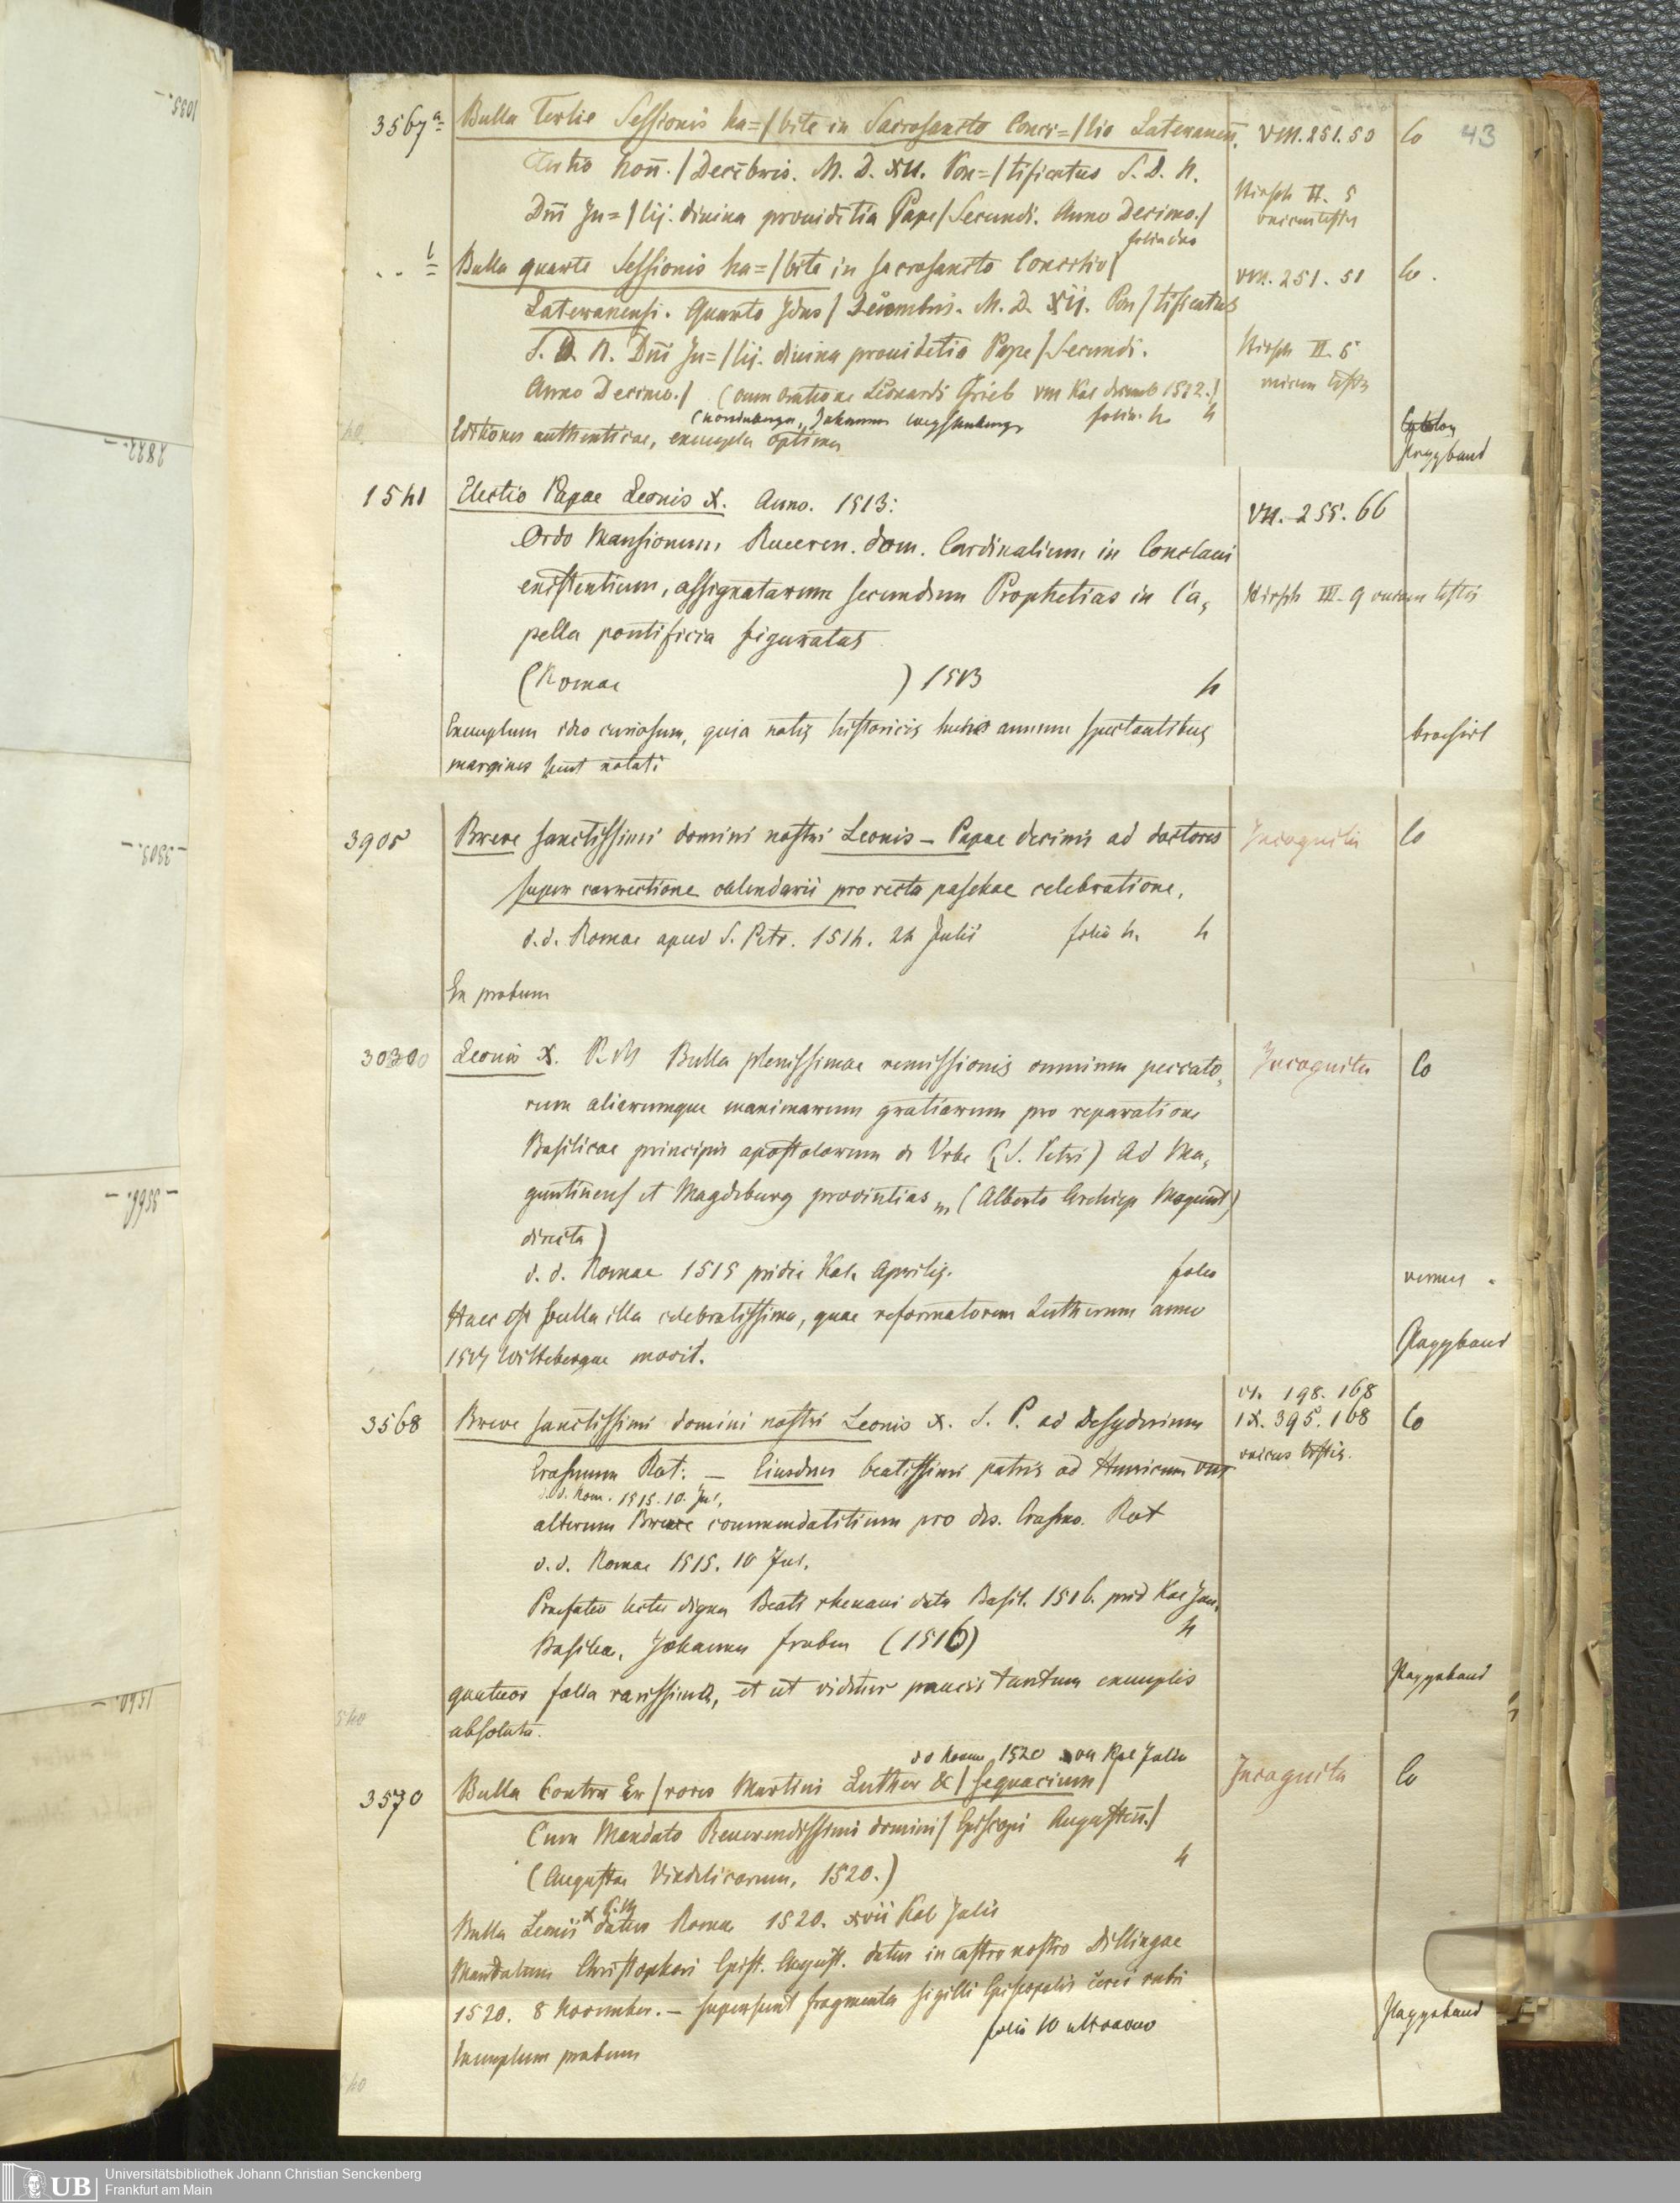 43
3567 a
Bulla Tertie Sessionis ha=/bite in Sacrosancto Conci=/lio Lateranen̄.
VII. 251. 50
Co
Tertio Non̄./Decēbris. M. D. XII. Pon=/tificatus S. D. N.
Hirsch II. 5
Dn̄i Ju=/lij. diuina prouidētia Pape/Secundi. Anno Decimo./
unicus testis
folia duo
b
Bulla quarte Sessionis ha=/bite in sacrosancto Concilio/
VII. 251. 51
Co.
Lateranensi. Quarto Idus/Decembris. M. D. XII. Pon/tificatus
S. D. N. Dn̄i Ju=/lij. diuina prouidētia Pape/Secundi.
Hirsch II. 5
Anno Decimo./ (cum oratione Leonardi Grieb VIII Kal decemb 1512.)
unicus testis
folia 4. 4
Editiones authenticae, exempla optima
Pappband
1541
Electio Papae Leonis X. Anno. 1513:
VII. 255. 66
Ordo Mansionum, Reueren. dom. Cardinalium in Conclaui
existentium, assignatarum secundum Prophetias in Ca,
Hirsch III. 9 unicus testis
pella pontificia figuratas
(Romae ) 1513 4
Exemplum ideo curiosum, quia notis historicis hunc annum spectantibus
brochirt
margines sunt notati
3905
Breve sanctissimi domini nostri Leonis – Papae decimi ad doctores
Incognita
Co
super correctione calendarii pro recta paschae celebratione,
d. d. Romae apud S. Petr. 1514. 24 Julii folia 4. 4
Ex probum
3030
Leonis X. P. M Bulla plenissimae remissionis omnium peccato,
Incognita
Co
rum aliarumque maximarum gratiarum pro reparatione
Basilicae principis apostolorum de Vrbe (S. Petri) Ad Ma,
guntinens et Magdeburg provintias (Alberto Archiep Mogunt)
directa)
d. d. Romae 1515 pridie Kal. Aprilis. folio
Haec est bulla illa celebratissima, quae reformatorem Lutherum anno
Pappband
1517 Wittebergae movit.
3568
VI. 198. 168
Breve sanctissimi domini nostri Leonis X. S. P. ad Desyderium
IX. 395. 168
Co
Erasmum Rot: — Eiusdem beatissimi patris ad Henricum VIII
unicus testis.
d. d. Rom. 1515. 10. Jul.
alterum Breve commendatitium pro des. Erasmo. Rot
d. d. Romae 1515. 10 Jul.
Praefatio lectu digna Beati rhenani data Basil. 1516. prid Kal Jan.
Basilea, Johannes froben (1516) 4
quatuor folia rarissima, et ut videtur paucis tantum exemplis
Pappband
absoluta.
dd Romae 1520 XVII Kal Julii
3570
Bulla Contra Er/rores Martini Luther &/sequacium/
Incognita
Co
Cum Mandato Reuerendissimi domini/Episcopi Augusten̄./
(Augustae Vindelicorum, 1520.) 4
Bulla Leonis X P. M. data Romae 1520. XVII Kal Julii
Mandatum Christophori Epist. August. datum in castro nostro Dillingae
1520. 8 November. – supersunt fragmenta sigilli Episcopalis cerei rubri
folia 10 ultimo vacuo
Pappband
Exemplum probum
1035. —
2822. —
— 3303. —
— 3566. —
1560. —
UB
Universitätsbibliothek Johann Christian Senckenberg
Frankfurt am Main